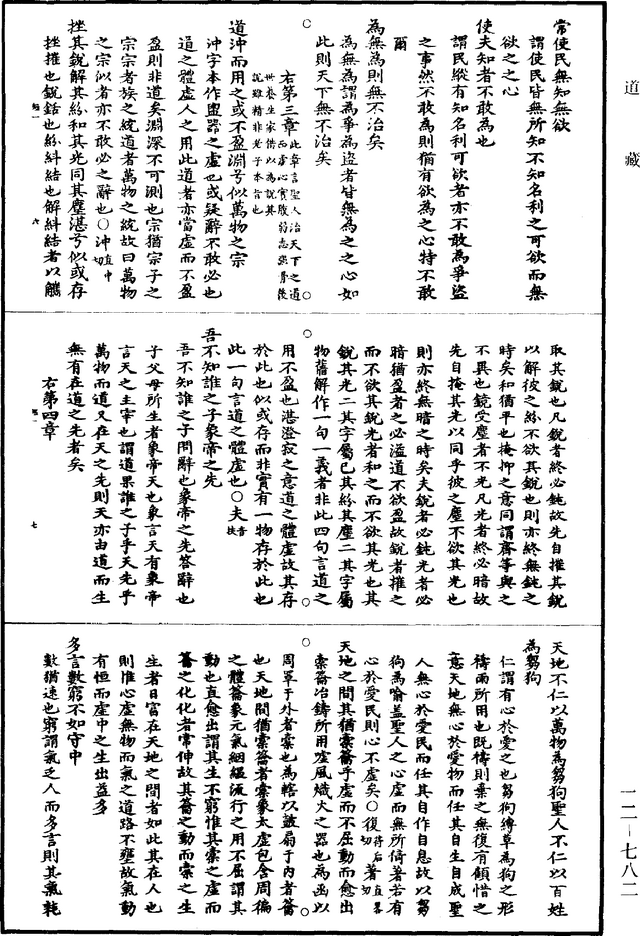 道藏
常使民無知無欲
謂使民皆無所知不知名利之可欲而無
欲之之心
使夫知者不敢為也
謂民縱有知名利可欲者亦不敢為爭盜
之事然不敢為則猶有欲為之心特不敢
爾
為無為則無不治矣
為無為謂為爭為盜者皆無為之之心如
此則天下無不治矣
右第三章此章言聖人治天下之道而虛心實腹弱志強骨後世養生家借以為說其說雖精非老子本旨也
道沖而用之或不盈淵兮似萬物之宗
沖字本作盅器之虛也或疑辭不敢必也
道之體虛人之用此道者亦當虛而不盈
盈則非道矣淵深不可測也宗猶宗子之
宗宗者族之統道者萬物之統故曰萬物
之宗似者亦不敢必之辭也○沖直中切
挫其銳解其紛和其光同其塵湛兮似或存
挫摧也銳銛也紛糾結也解糾結者以觿
六
取其銳也凡銳者終必鈍故先自摧其銳
以解彼之紛不欲其銳也則亦終無鈍之
時矣和猶平也掩抑之意同謂齊等與之
不異也鏡受塵者不光凡光者終必暗故
先自掩其光以同乎彼之塵不欲其光也
則亦終無暗之時矣夫銳者必鈍光者必
暗猶盈者之必溢道不欲盈故銳者摧之
而不欲其銳光者和之而不欲其光也其
銳其光二其字屬已其紛其塵二其字屬
物舊解作一句一義者非此四句言道之
用不盈也湛澄寂之意道之體虛故其存
於此也似或存而非實有一物存於此也
此一句言道之體虛也○夫音扶
吾不知誰之子象帝之先
吾不知誰之子問辭也象帝之先答辭也
子父母所生者象帝天也象言天有象帝
言天之主宰也謂道果誰之子乎天先乎
萬物而道又在天之先則天亦由道而生
無有在道之先者矣
右第四章
七
天地不仁以萬物為芻狗聖人不仁以百姓
為芻狗
仁謂有心於愛之也芻狗縛草為狗之形
禱雨所用也既禱則棄之無復有顧惜之
意天地無心於愛物而任其自生自成聖
人無心於愛民而任其自作自息故以芻
狗為喻蓋聖人之心虛而無所倚著若有
心於愛民則心不虛矣○復扶后切著直畧切
天地之間其猶橐籥乎虛而不屈動而愈出
橐籥冶鑄所用虛風熾火之器也為函以
周罩于外者橐也為轄以鼓扇于內者籥
也天地間猶橐籥者橐象太虛包含周徧
之體籥象元氣絪縕流行之用不屈謂其
動也直愈出謂其生不窮惟其橐之虛而
籥之化化者常伸故其籥之動而橐之生
生者日富在天地之間者如此其在人也
則惟心虛無物而氣之道路不壅故氣動
有恒而虛中之生出益多
多言數窮不如守中
數猶速也窮謂氣乏人而多言則其氣耗
一二－七八二